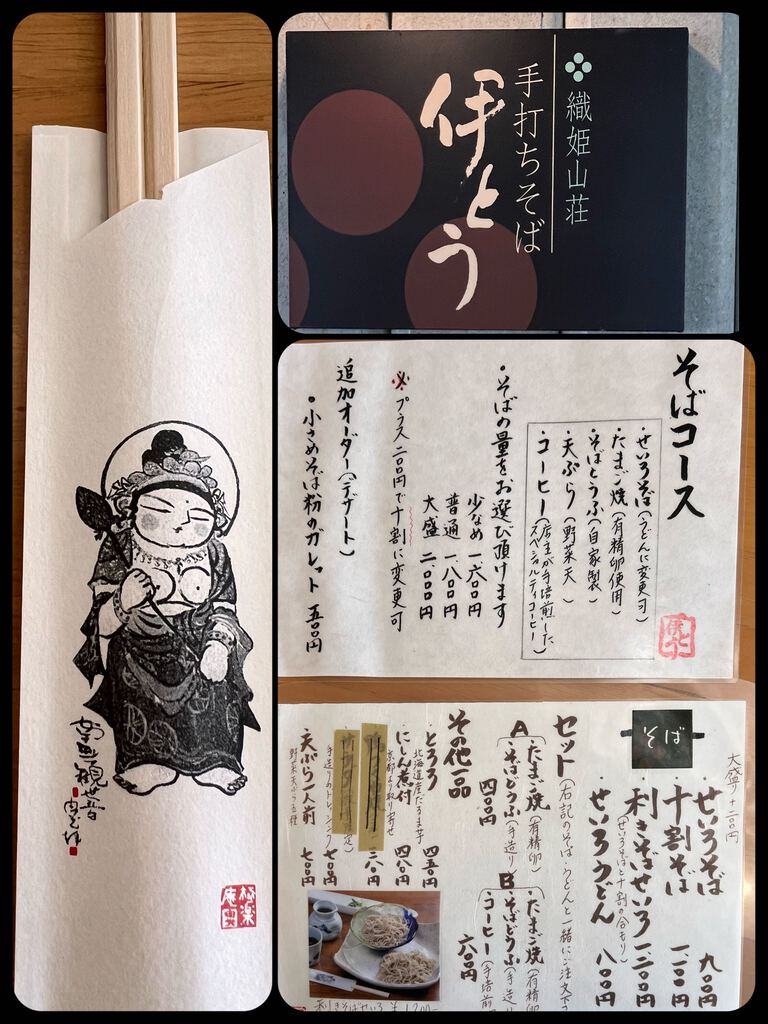 織姫山荘
手打ちそば
伊とう
そばコース
・せいろそば(うどんに変更可)
・たまご焼(有精卵使用)
・そばとうふ(自家製)
・天ぷら(野菜天)
・コーヒー(店主が手焙煎した
スペシャルティコーヒー)
・そばの量をお選び頂けます
少なめ 一、六〇〇円
普通 一、八〇〇円
大盛 二、〇〇〇円
プラス二〇〇円で十割に変更可
追加オーダー(デザート)
・小さめそば粉のガレット 五〇〇円
そば
大盛り+二〇〇円
・せいろそば 九〇〇円
・十割そば 一、一〇〇円
・利きそばせいろ 一、二〇〇円
(せいろそばと十割の合もり)
・せいろうどん 八〇〇円
セット(右記のそば、うどんと一緒にご注文下
A
・たまご焼(有精卵)
・そばとうふ(手造り)
四〇〇円
B
・たまご焼(有精
・そばとうふ(手造
・コーヒー(手焙煎
六〇〇円
その他一品
・とろろ 四五〇円
北海道産だるま芋
・にしん煮付 四八〇円
京都より取り寄せ
手造りのドレッシング
七〇〇円
・天ぷら一人前 七〇〇円
野菜天ぷら五種
利きそばせいろ ¥1200-
観世音
極楽